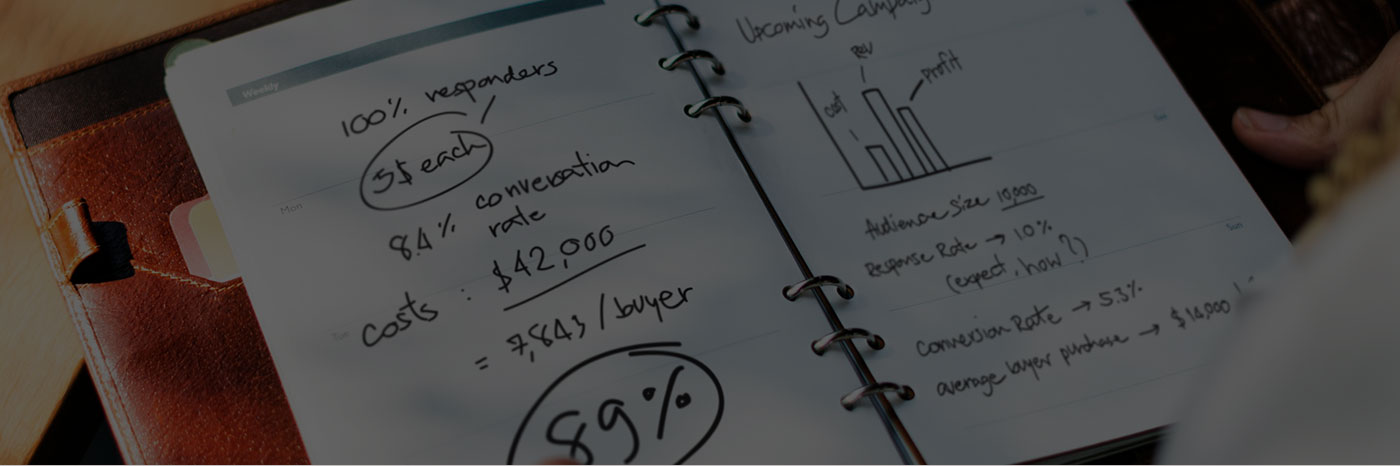 Weekly
100% responders
5$ each
Mon
8.4% conversation
rate
Tue
costs : $42,000
= 7,843 / buyer
89%
Upcoming Campaign
Rev
cost
Profit
Audience Size 10,000
Response Rate → 1.0%
(expect, how?)
Sun
Conversion Rate → 5.3%
average buyer purchase → $14,000